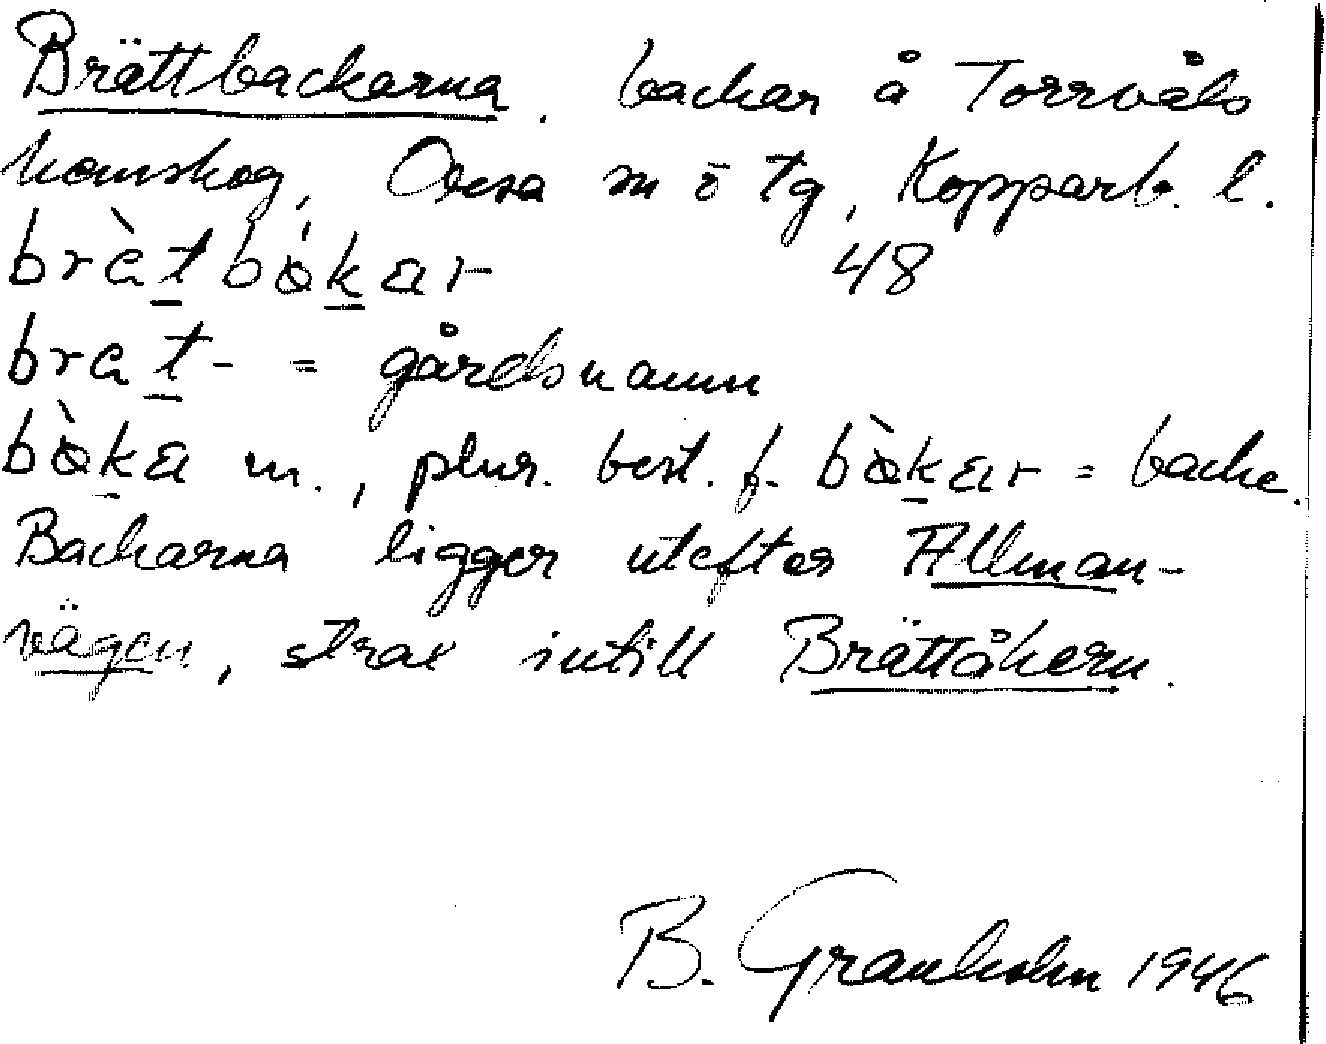 Brättbackarna. backar å Torrvåls
hemskog, Orsa sn o tg, Kopparb. l.
bràtbákar 48
brat- = gårdsnamn
bàka m., plur. best. f. bàkar = backe.
Backarna ligger utefter Allman-
vägen, strax intill Brättåkern.
B. Granholm 1946